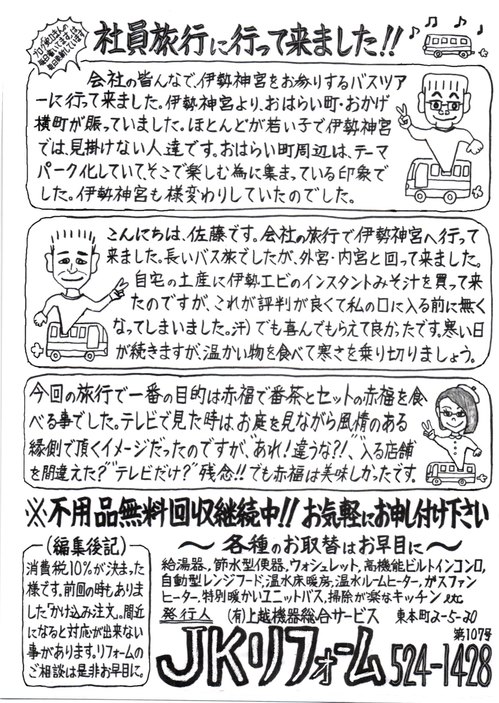 社員旅行に行って来ました!!
会社の皆んなで、伊勢神宮をお参りするバスツア
ーに行って来ました。伊勢神宮より、おはらい町・おかげ
横町が賑っていました。ほとんどが若い子で伊勢神宮
では、見掛けない人達です。おはらい町周辺は、テーマ
パーク化していて、そこで楽しむ為に集まっている印象で
した。伊勢神宮も様変わりしていたのでした。
こんにちは、佐藤です。会社の旅行で伊勢神宮へ行って
来ました。長いバス旅でしたが、外宮・内宮と回って来ました。
自宅の土産に伊勢エビのインスタントみそ汁を買って来
たのですが、これが評判が良くて私の口に入る前に無く
なってしまいました。汗)でも喜んでもらえて良かったです。寒い日
が続きますが、温かい物を食べて寒さを乗り切りましょう。
今回の旅行で一番の目的は赤福で番茶とセットの赤福を食
べる事でした。テレビで見た時は、お庭を見ながら風情のある
縁側で頂くイメージだったのですが、"あれ!違うな?!""入る店舗
を間違えた?""テレビだけ?"残念!!でも赤福は美味しかったです。
※不用品無料回収継続中!!お気軽にお申し付け下さい
(編集後記)
消費税10%が決まった
様です。前回の時もありま
した「かけ込み注文」。間近
になると対応が出来ない
事があります。リフォームの
ご相談は是非お早目に。
～各種のお取替はお早目に～
給湯器、節水型便器、ウォシュレット、高機能ビルトインコンロ、
自動型レンジフード、温水床暖房、温水ルームヒーター、ガスファン
ヒーター、特別暖かいユニットバス、掃除が楽なキッチン etc
発行人 (有)上越機器総合サービス 東本町2-5-20
第107号
JKリフォーム 524-1428